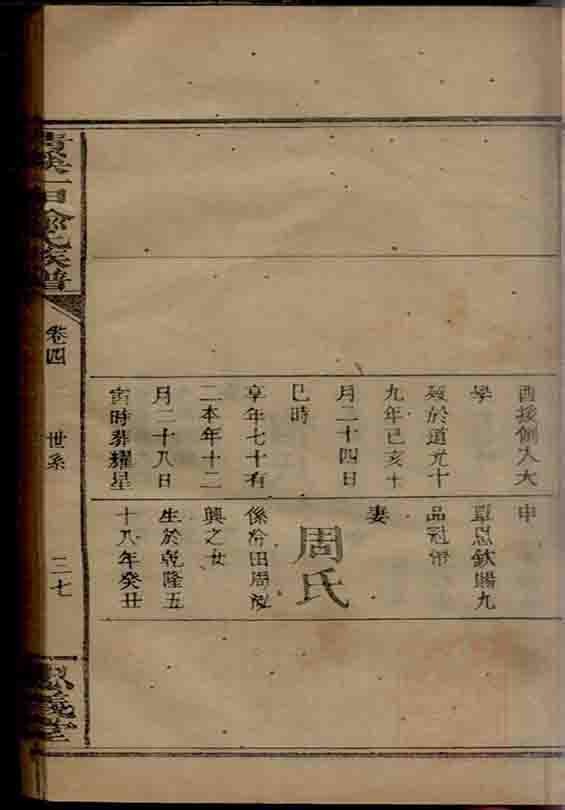 酉援例入大
學
歿於道光十
九年己亥十
月二十四日
巳時
享年七十有
二本年十二
月二十八日
寅時葬耀星
申
覃恩欽賜九
品冠帶
妻
周氏
係冷田周泓
興之女
生於乾隆五
十八年癸丑
氏族譜
卷四
世系
二七
義堂